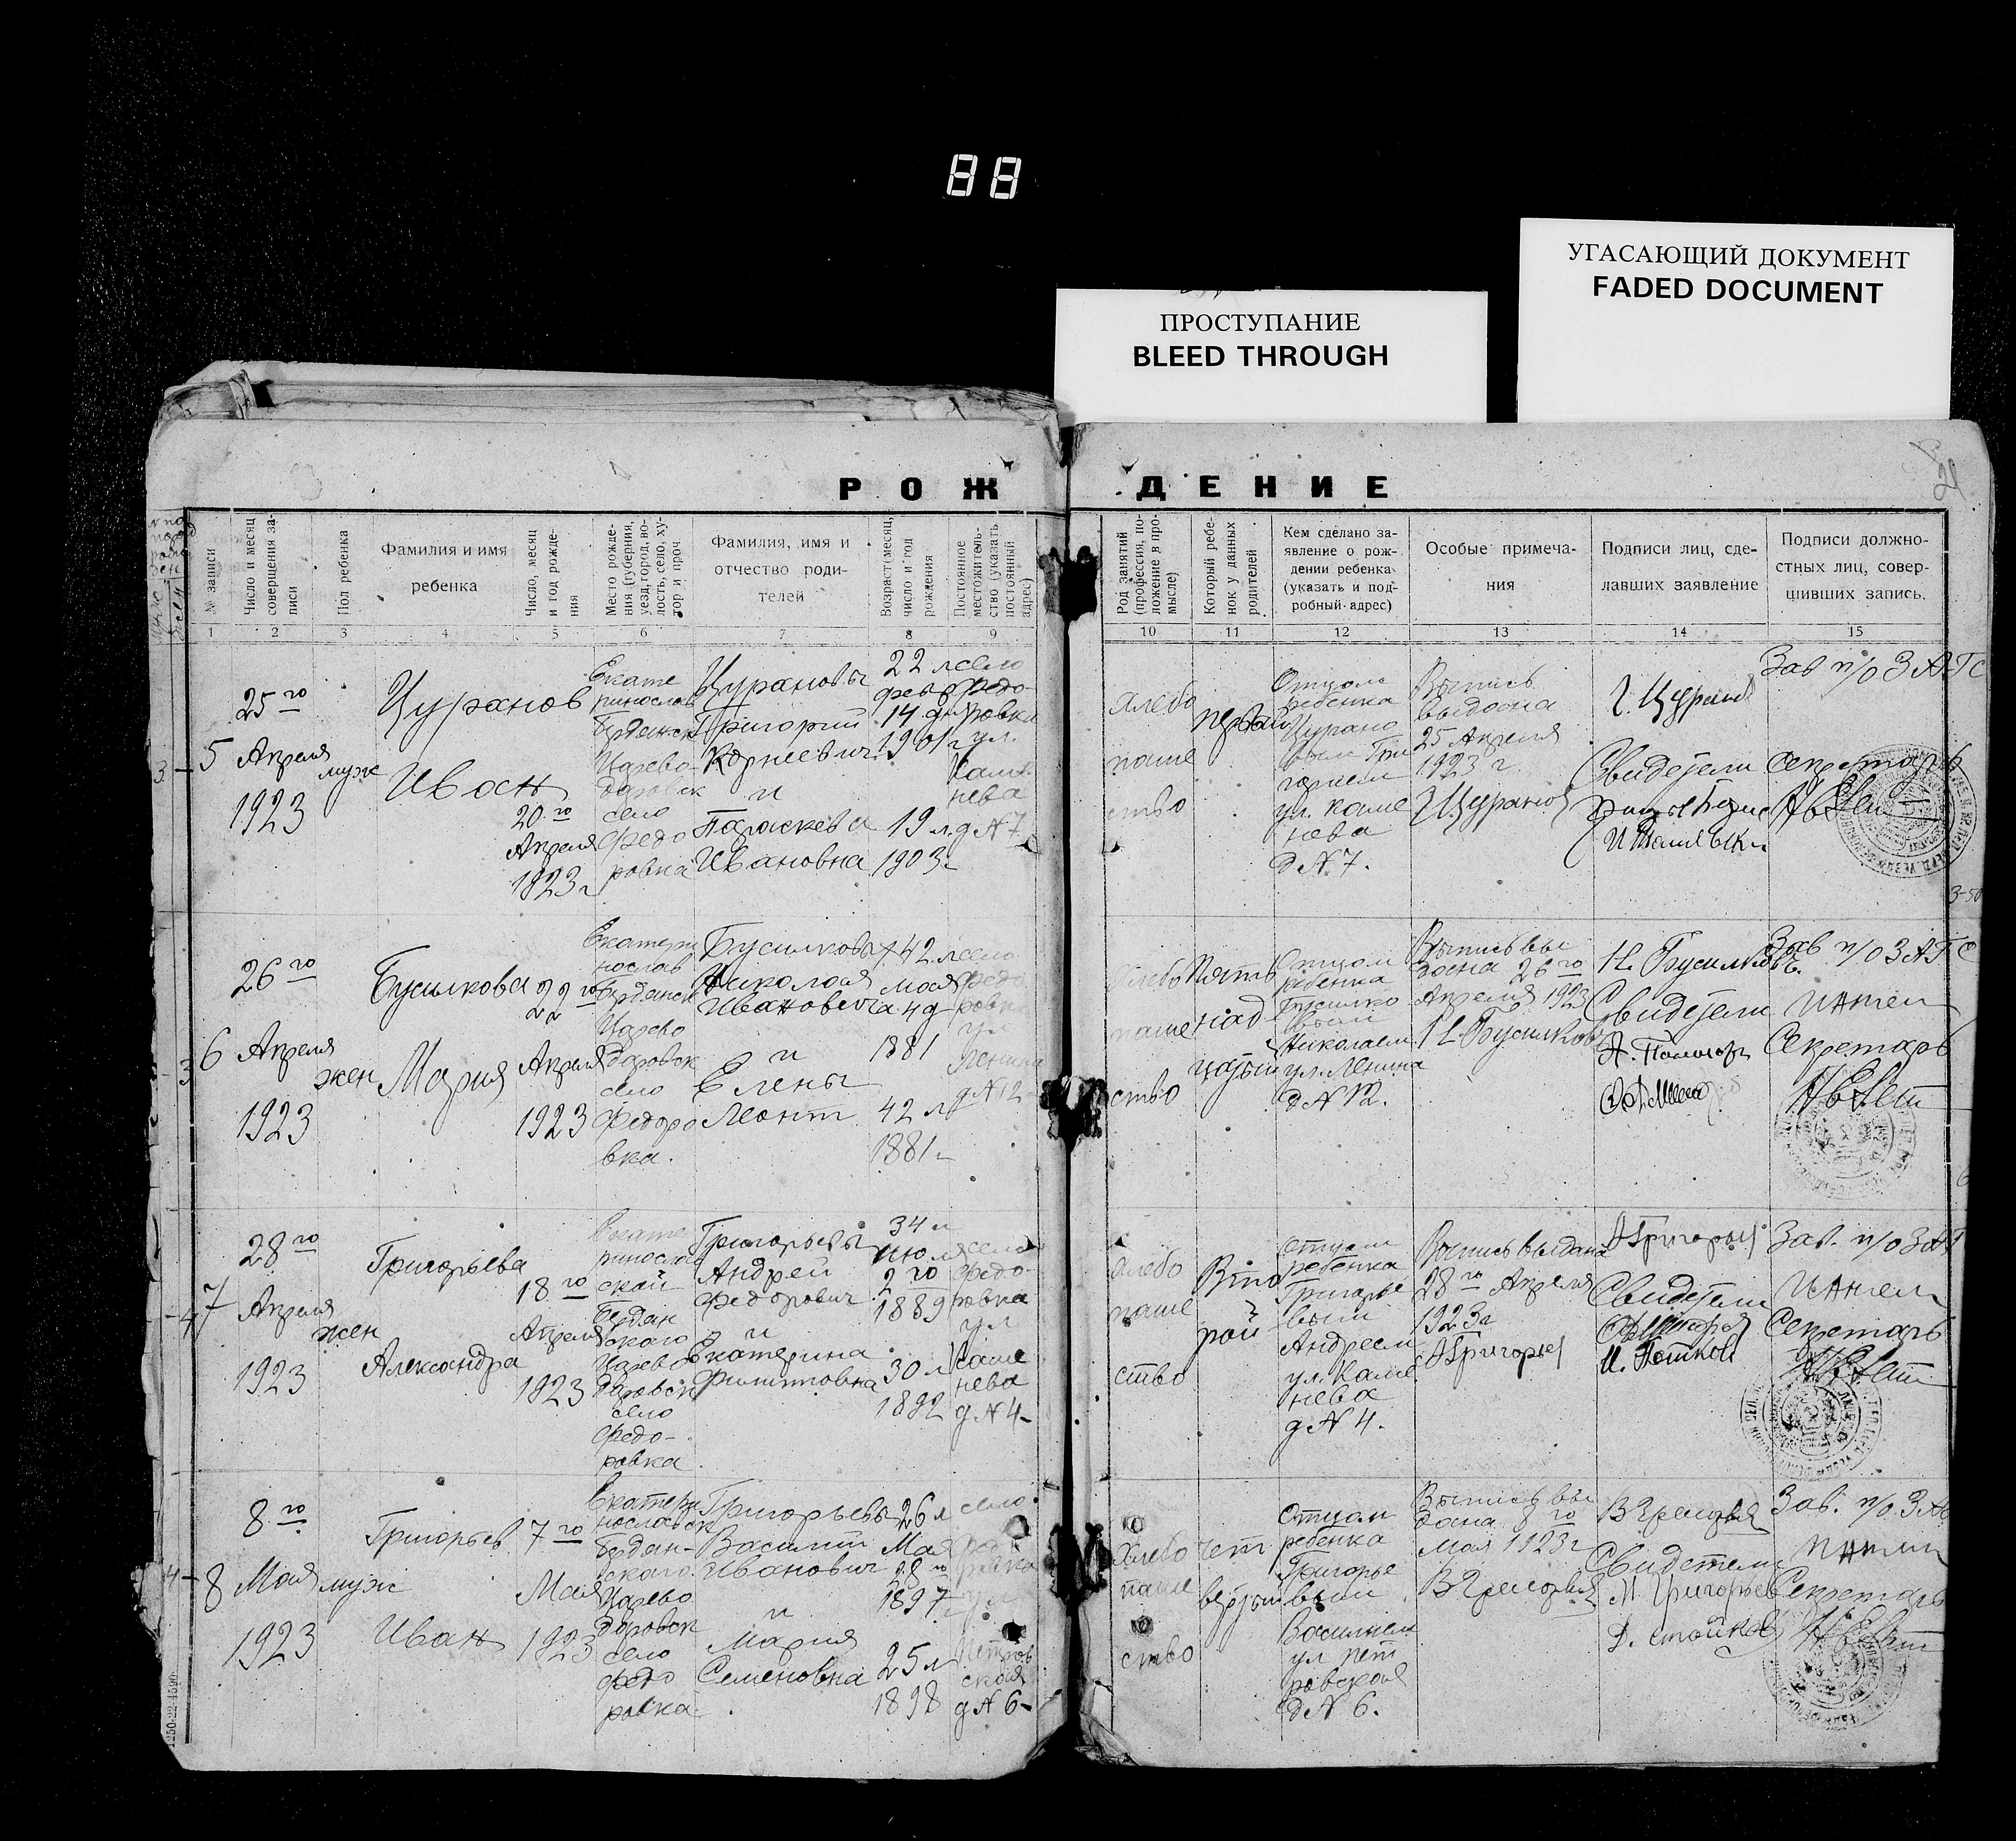 88
УГАСАЮЩИЙ ДОКУМЕНТ
FADED DOCUMENT
ПРОСТУПАНИЕ
BLEED THROUGH
РОЖ
ДЕНИЕ
№ записи
Число и месяц совершения записи
Пол ребенка
Фамилия и имя
ребенка
Число, месяц
и год рожде-
ния
Место рожде-
ния (губерния,
уезд, город, во-
лость, село, ху-
тор и проч
Фамилия, имя и
отчество роди-
телей
Возраст месяц,
число и год
рождения
Постоянное
местожитель-
ство (указать
постоянный
адрес)
Род занятий
(профессия, по-
ложение в про-
мысле)
Который ребе-
нок у данных
родителей
Кем сделано за-
явление о рож-
дении ребенка
(указать и под-
робный адрес)
Особые примеча-
ния
Подписи лиц, сде-
лавших заявление
Подписи должно-
стных лиц, совер-
шивших запись.
1 2 3 4 5 6 7 8 9
10 11 12 13 14 15
5
25го
Апреля
1923
муж
Цуранов
Иван
20го
Апреля
1923г
Екате
ринослав
Бердянск
Царево-
Даровск
село
Федо
ровка
Цурановы
Григорий
Корнеевич
и
Параскева
Ивановна
22 л
фев
14 дня
1901 г
19 л.
1903г
село
Федо-
ровка
ул.
Каме
нева
д № 7
хлебо
паше
ство
первый
Отцом
ребенка
Цурано
вым Гри
горием
ул. Каме
нева
д № 7.
Выпись
выдана
25 Апреля
1923 г.
Г. Цуранов
Г. Цуранов
Свидетели
Зав п/о ЗАГС
Секретарь
3-50
6
26го
Апреля
1923
жен
Бусилкова
Мария
22го
Апреля
1923
Екатери
нослав
Бердянск
Царево
Даровск
село
Федоро
вка.
Бусилковы
Николая
Ивановича
и
Елены
Леонт
42 л
мая
4д
1881
42 л
1881г
село
Федо
ровка
ул
Ленина
д № 12
хлебо
паше
ство
Пять
над
цатый
Отцом
ребенка
Бусилко
вым
Николаем
ул. Ленина
д № 12.
Выпись вы
дана 26го
Апреля 1923
Н. Бусилков
Н. Бусилковъ.
Свидетели
Зав п/о ЗАГС
Секретарь
7
28го
Апреля
1923
жен
Григорьева
Александра
18го
Апреля
1923
Екате
ринослав
ской
Бердян
скаго
Царево
Даровск
село
Федо-
ровка
Григорьевы
Андрей
Федорович
и
Екатерина
Филипповна
34 л
Июля
2го
1889
30 л
1892
село
Федо-
ровка
ул
Каме
нева
д № 4-
хлебо
паше
ство
Вто
рой
отцом
ребенка
Григорье
вым
Андреем
ул. Каме
нева
д № 4.
Выпись выдана
28го Апреля
1923г
А Григорьев
А Григорьев
Свидетели
Зав. п/о ЗАГ
Секретарь
8
8го
Мая
1923
муж
Григорьев
Иван
7го
Мая
1923
Екатери
нославск
Бердян-
скаго
Царево
Даровск
село
Федо
ровка
Григорьевы
Василий
Иванович
и
Мария
Семеновна
26 л
Мая
28го
1897
25 л
1898
село
Федо
ровка
ул
Петров
ская
д № 6-
Хлебо
паше
ство
чет
вертый
Отцом
ребенка
Григорье
вым
Василием
ул Пет
ровская
д № 6.
Выпись вы
дана 8го
мая 1923г
Свидетели
М. Григорьев
Д. Стойков
Зав. п/о ЗАГ
Секретарь
1250-22-4590